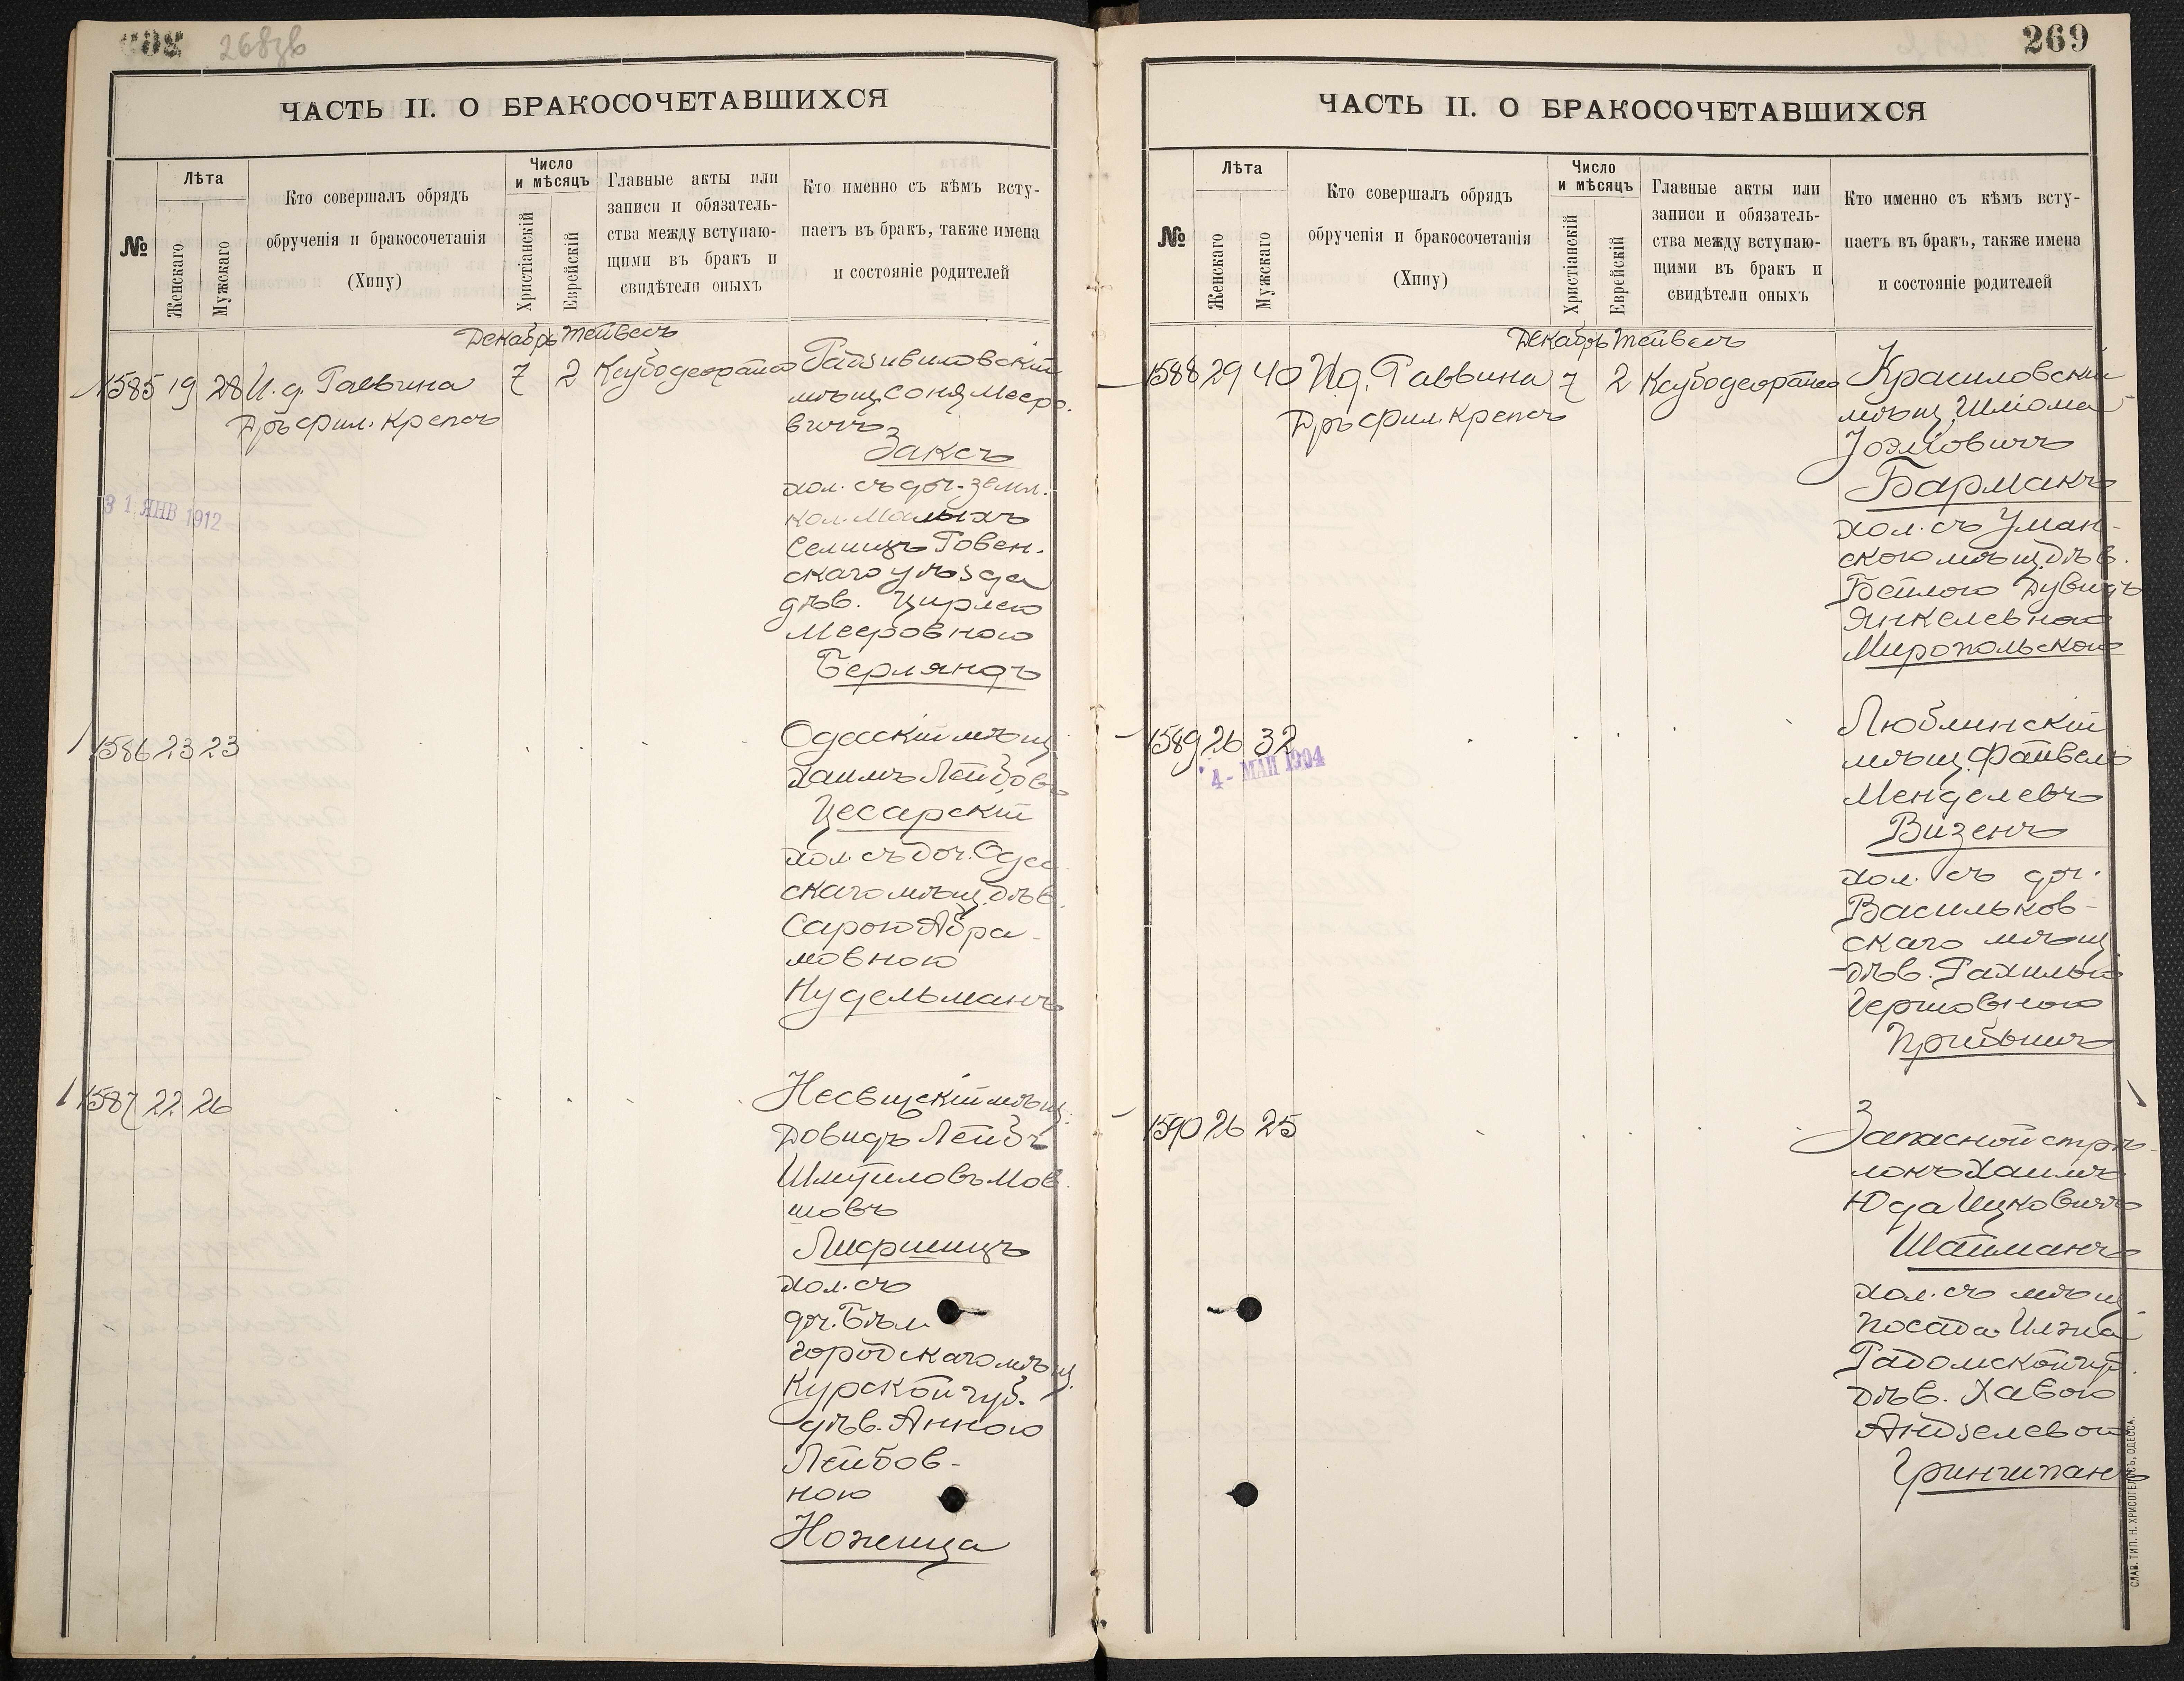 268зв
ЧАСТЬ II. О БРАКОСОЧЕТАВШИХСЯ
№
Лѣта
Женскаго
Мужскаго
Кто совершалъ обрядъ
обрученія и бракосочетанія
(Хипу)
Число
и мѣсяцъ
Христіанскій
Еврейскій
Главные акты или
записи и обязатель-
ства между вступаю-
щими въ бракъ и
свидѣтели оныхъ
Кто именно съ кѣмъ всту-
паетъ въ бракъ, также имена
и состояніе родителей
Декабрь Тейвесъ
1585 19 28 И. д. Раввина 7 2
Дръ фил. Крепсъ
Радзивиловскій
мѣщ. Соня Мееро-
вичъ
Заксъ
хол. съ доч. земл.
кол. Малыхъ
Селищъ Ровен-
скаго уѣзда
дѣв. Цирлею
Мееровною
Берляндъ
31 ЯНВ 1912
1586 23 23
Одесскій мѣщ.
Хаимъ Лейбовъ
Цесарскій
хол. съ доч. Одес
скаго мѣщ. дѣв.
Сарою Абра-
мовною
Нудельманъ
1587 22 26
Несвижскій мѣщ.
Довидъ Лейбъ
Шмуиловъ Мов
шовъ
Лифшицъ
хол. съ
доч. Бѣл
городскаго мѣщ.
Курской губ.
дѣв. Анною
Лейбов-
ною
Ножница
269
ЧАСТЬ II. О БРАКОСОЧЕТАВШИХСЯ
№
Лѣта
Женскаго
Мужскаго
Кто совершалъ обрядъ
обрученія и бракосочетанія
(Хипу)
Число
и мѣсяцъ
Христіанскій
Еврейскій
Главные акты или
записи и обязатель-
ства между вступаю-
щими въ бракъ и
свидѣтели оныхъ
Кто именно съ кѣмъ всту-
паетъ въ бракъ, также имена
и состояніе родителей
Декабрь Тейвесъ
1588 29 40 И. д. Раввина 7 2
Дръ фил. Крепсъ
Красиловскій
мѣщ. Шлiома
Барманъ
хол. съ Уман-
скою мѣщ. дѣв.
Бейлою Дувидъ
Янкелевною
Миропольскою
1589 26 32
4- МАЙ 1904
Люблинскій
мѣщ. Файвель
Менделевъ
Визенъ
хол. съ доч.
Васильков-
скаго мѣщ
дѣв. Рахилью
Гершовною
1590 26 25
Запасной стрѣ-
локъ Хаимъ
Юда Ицковичъ
Шайманъ
хол. съ мѣщ.
посада Илжа
Радомской губ.
дѣв. Хавою
Грингшпанъ
СЛАВ. ТИП. Н. ХРИСОГЕЛОСЪ, ОДЕССА.